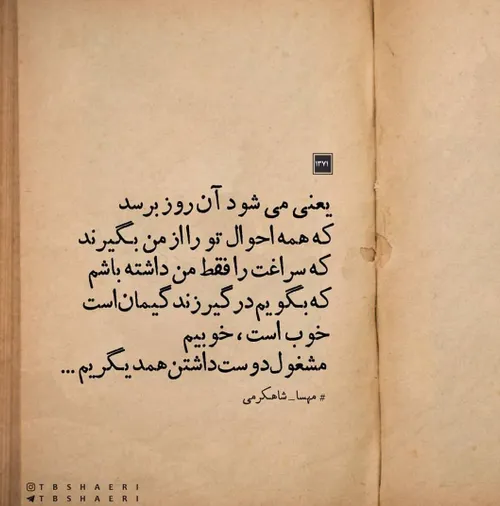 ۱۳۷۱
یعنی می شود آن روز برسد
که همه احوال تو را از من بگیرند
که سراغت را فقط من داشته باشم
که بگویم درگیر زندگیمان است
خوب است ، خوبیم
مشغول دوست داشتن همدیگریم ...
# مهسا_شاهکرمی
TBSHAERI
TBSHAERI